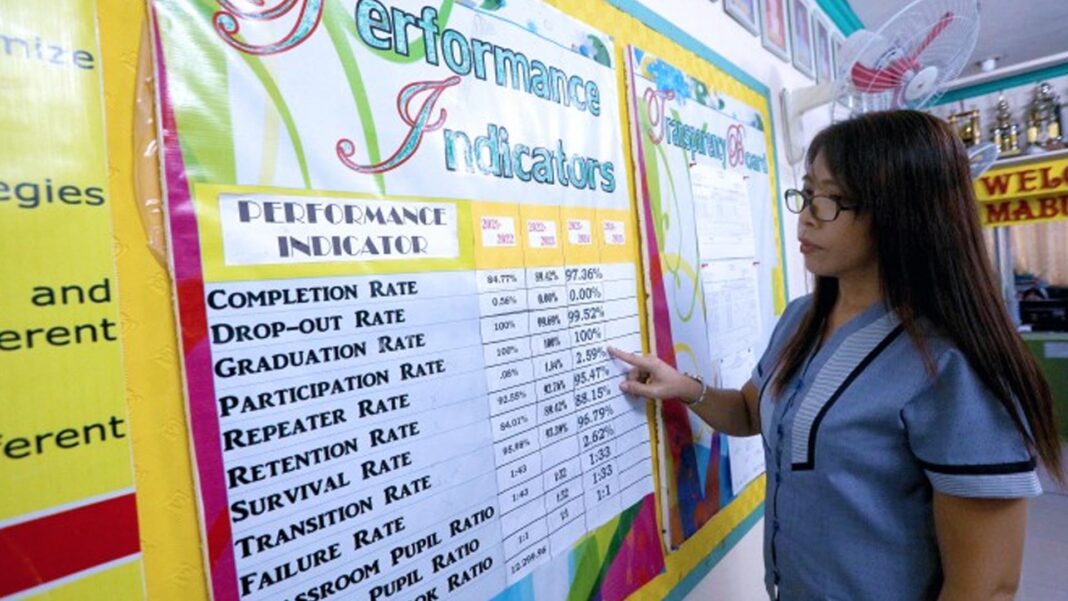 mize
egies
and
erent
fferent
Performance
Indicators
PERFORMANCE INDICATOR 2021-2022 2022-2023 2023-2024
COMPLETION RATE 84.77% 97.36%
DROP-OUT RATE 0.56% 0.00% 0.00%
GRADUATION RATE 100% 99.52%
PARTICIPATION RATE 100% 100% 100%
REPEATER RATE 2.59%
RETENTION RATE 92.55% 95.47%
SURVIVAL RATE 84.07% 88.15%
TRANSITION RATE 95.88% 96.79%
FAILURE RATE 2.62%
ASSROOM PUPIL RATIO 1:43 1:32 1:33
PUPIL RATIO 1:43 1:32 1:33
OK RATIO 1:1 1:1 1:1
12,299.96
Transparency Board
WELC
MABU